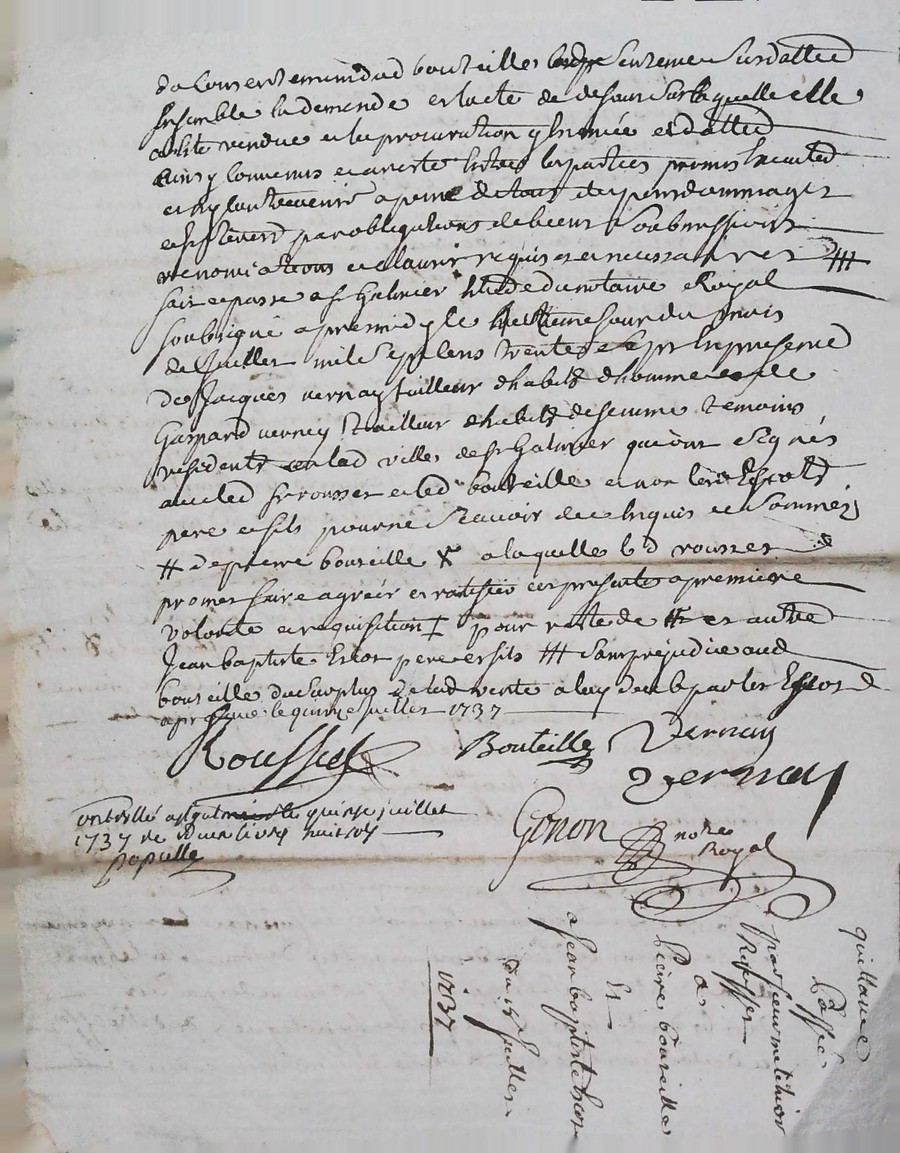 du consentement dud bouteille lad sentence susdatteé
Ensemble la demande et lacte de desaux sur laquelle elle
a esté rendue et la procuration y Enoncée et datteé
ainsy convenu et areste Entre les parties promis Executer
et ny contrevenir a peine de tous depens dommages
et Interes par obligations de biens soubmissions
renonciations et clauses requises et necessaires ⧻
fait et passe a st Galmier Etude du notaire Royal
soubsigné apremidy le huitieme Jour du mois
de Juillet mil sept cens trente sept En presence
de Jacques vernay tailleur dhabits dhomme et de
Gaspard verney tailleur dhabits de femme temoins
residents en lad ville de st Galmier qui ont signés
avec led sr rousset et led bouteille et non les Escots
pere et fils pour ne scavoir de ce Enquis et sommés
# de pierre bouteille x a laquelle led rousset
promet faire agréer et ratifier ces presentes a premiere
volonté et requisition ‡ pour reste de # et autre
Jean baptiste Escot pere et fils ⧻ sans prejudice aud
bouteille du surplus de lad vente a luy deub par les Escots
aprouvé le quinze juillet 1737
Rousset Bouteille Vernay
Vernay
controllé a st galmier le quinze juillet
1737 re douze livres huit sols
populle
Gonon nore Royal
quittance
passé
par sieur melchior
Rousset
a
Pierre bouteille
Et
a Jean baptiste Escot
du 15 Juillet
1737